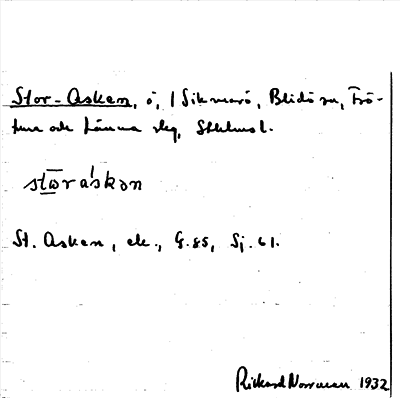 Stor-Asken, ö, i Sikmarö, Blidö sn, Frö-
tuna och Länna skg, Sthlms l.
storaskən
St. Asken, ek., G.85, Sj. 61.
Rickard Norrman 1932